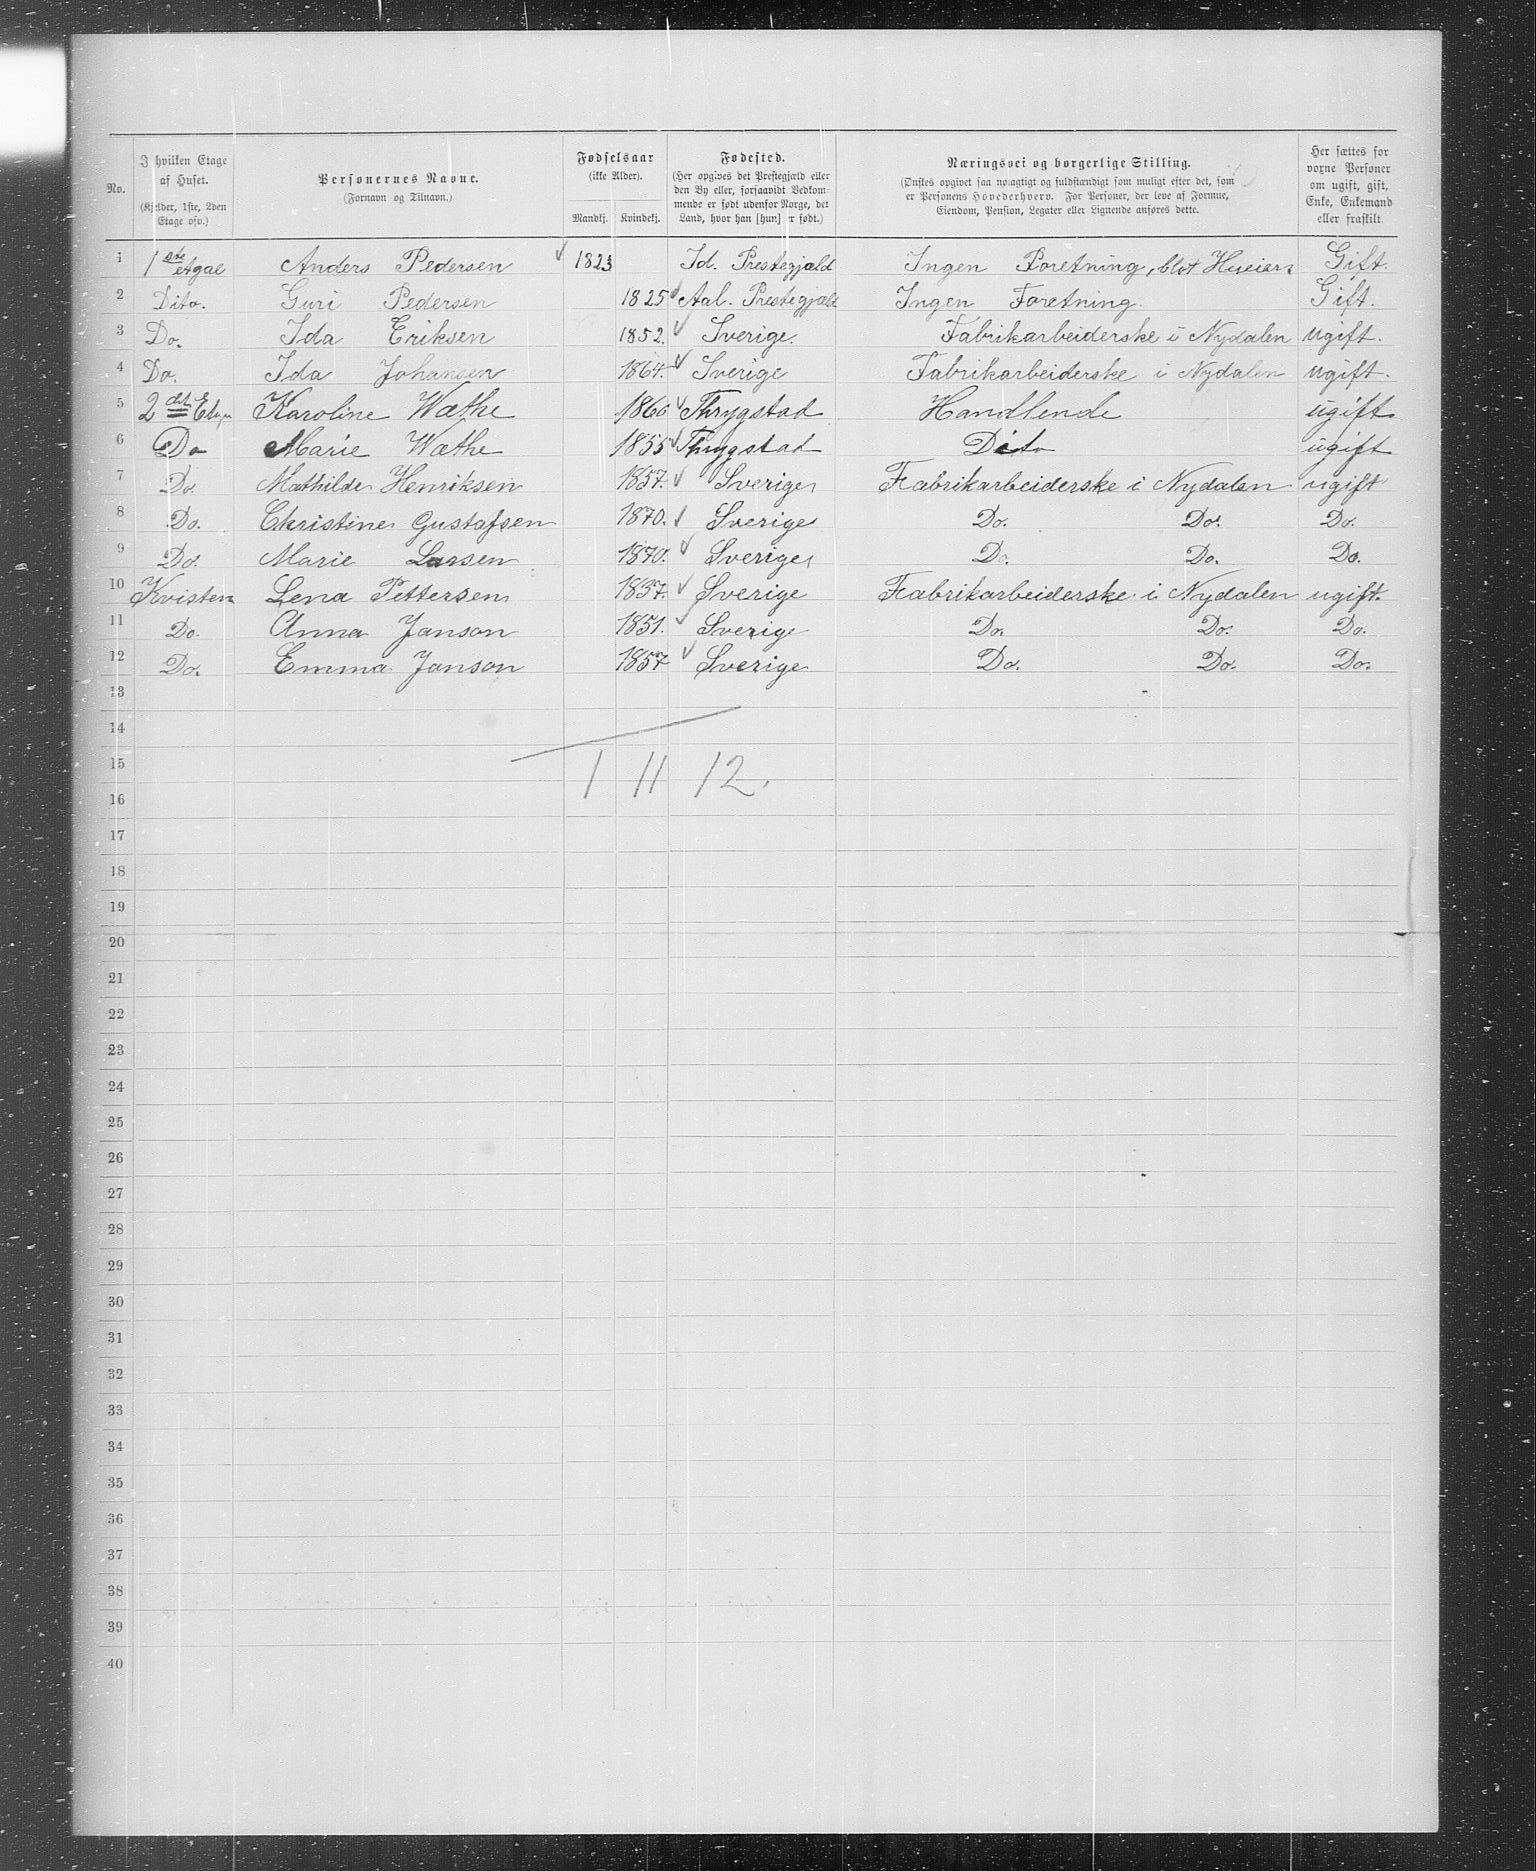 No.
I hvilken Etage af Huset.
(Kjelder, 1ste, 2den Etage osv.)
Personernes Navne.
(Fornavn og Tilnavn.)
Fødselsaar
(ikke Alder).
Mandkj. Kvindekj.
Fødested.
(Her opgives det Prestegjæld eller
den By eller, forsaavidt Vedkom-
mende er født udenfor Norge, det
Land, hvor han [hun] er født.)
Næringsvei og borgerlige Stilling.
(Ønskes opgivet saa nøiagtigt og fuldstændigt som muligt efter det, som
er Personens Hovederhverv. For Personer, der leve af Formue,
Eiendom, Pension, Legater eller Lignende anføres dette.
Her sættes for
voxne Personer
om ugift, gift,
Enke, Enkemand
eller fraskilt.
1 1ste etgae Anders Pedersen 1823 Id. Prestegjæld Ingen Foretning, blot Hueier Gift.
2 Dito. Guri Pedersen 1825 Aal. Prestegjæld Ingen Foretning. Gift.
3 Do. Ida Eriksen 1852. Sverige. Fabrikarbeiderske i Nydalen ugift.
4 Do. Ida Johansen 1864. Sverige Fabrikarbeiderske i Nydalen ugift.
5 2det Karoline Wæthe 1860 Thrygstad Handlende ugift
6 Do Marie Wæthe 1855 Thrygstad Dito ugift
7 Do. Mathilde Henriksen 1857. Sverige Fabrikarbeiderske i Nydalen ugift
8 Do. Christine Gustafsen 1870. Sverige Do. Do. Do.
9 Do. Marie Larsen 1870. Sverige D. Do. Do.
10 Kvisten Lena Pettersen 1857. Sverige Fabrikarbeiderske i Nydalen ugift.
11 Do. Anna Janson 1851. Sverige Do. Do. Do.
12 Do. Emma Janson 1857 Sverige Do. Do. Do.
13
14
15 1 11 12.
16
17
18
19
20
21
22
23
24
25
26
27
28
29
30
31
32
33
34
35
36
37
38
39
40